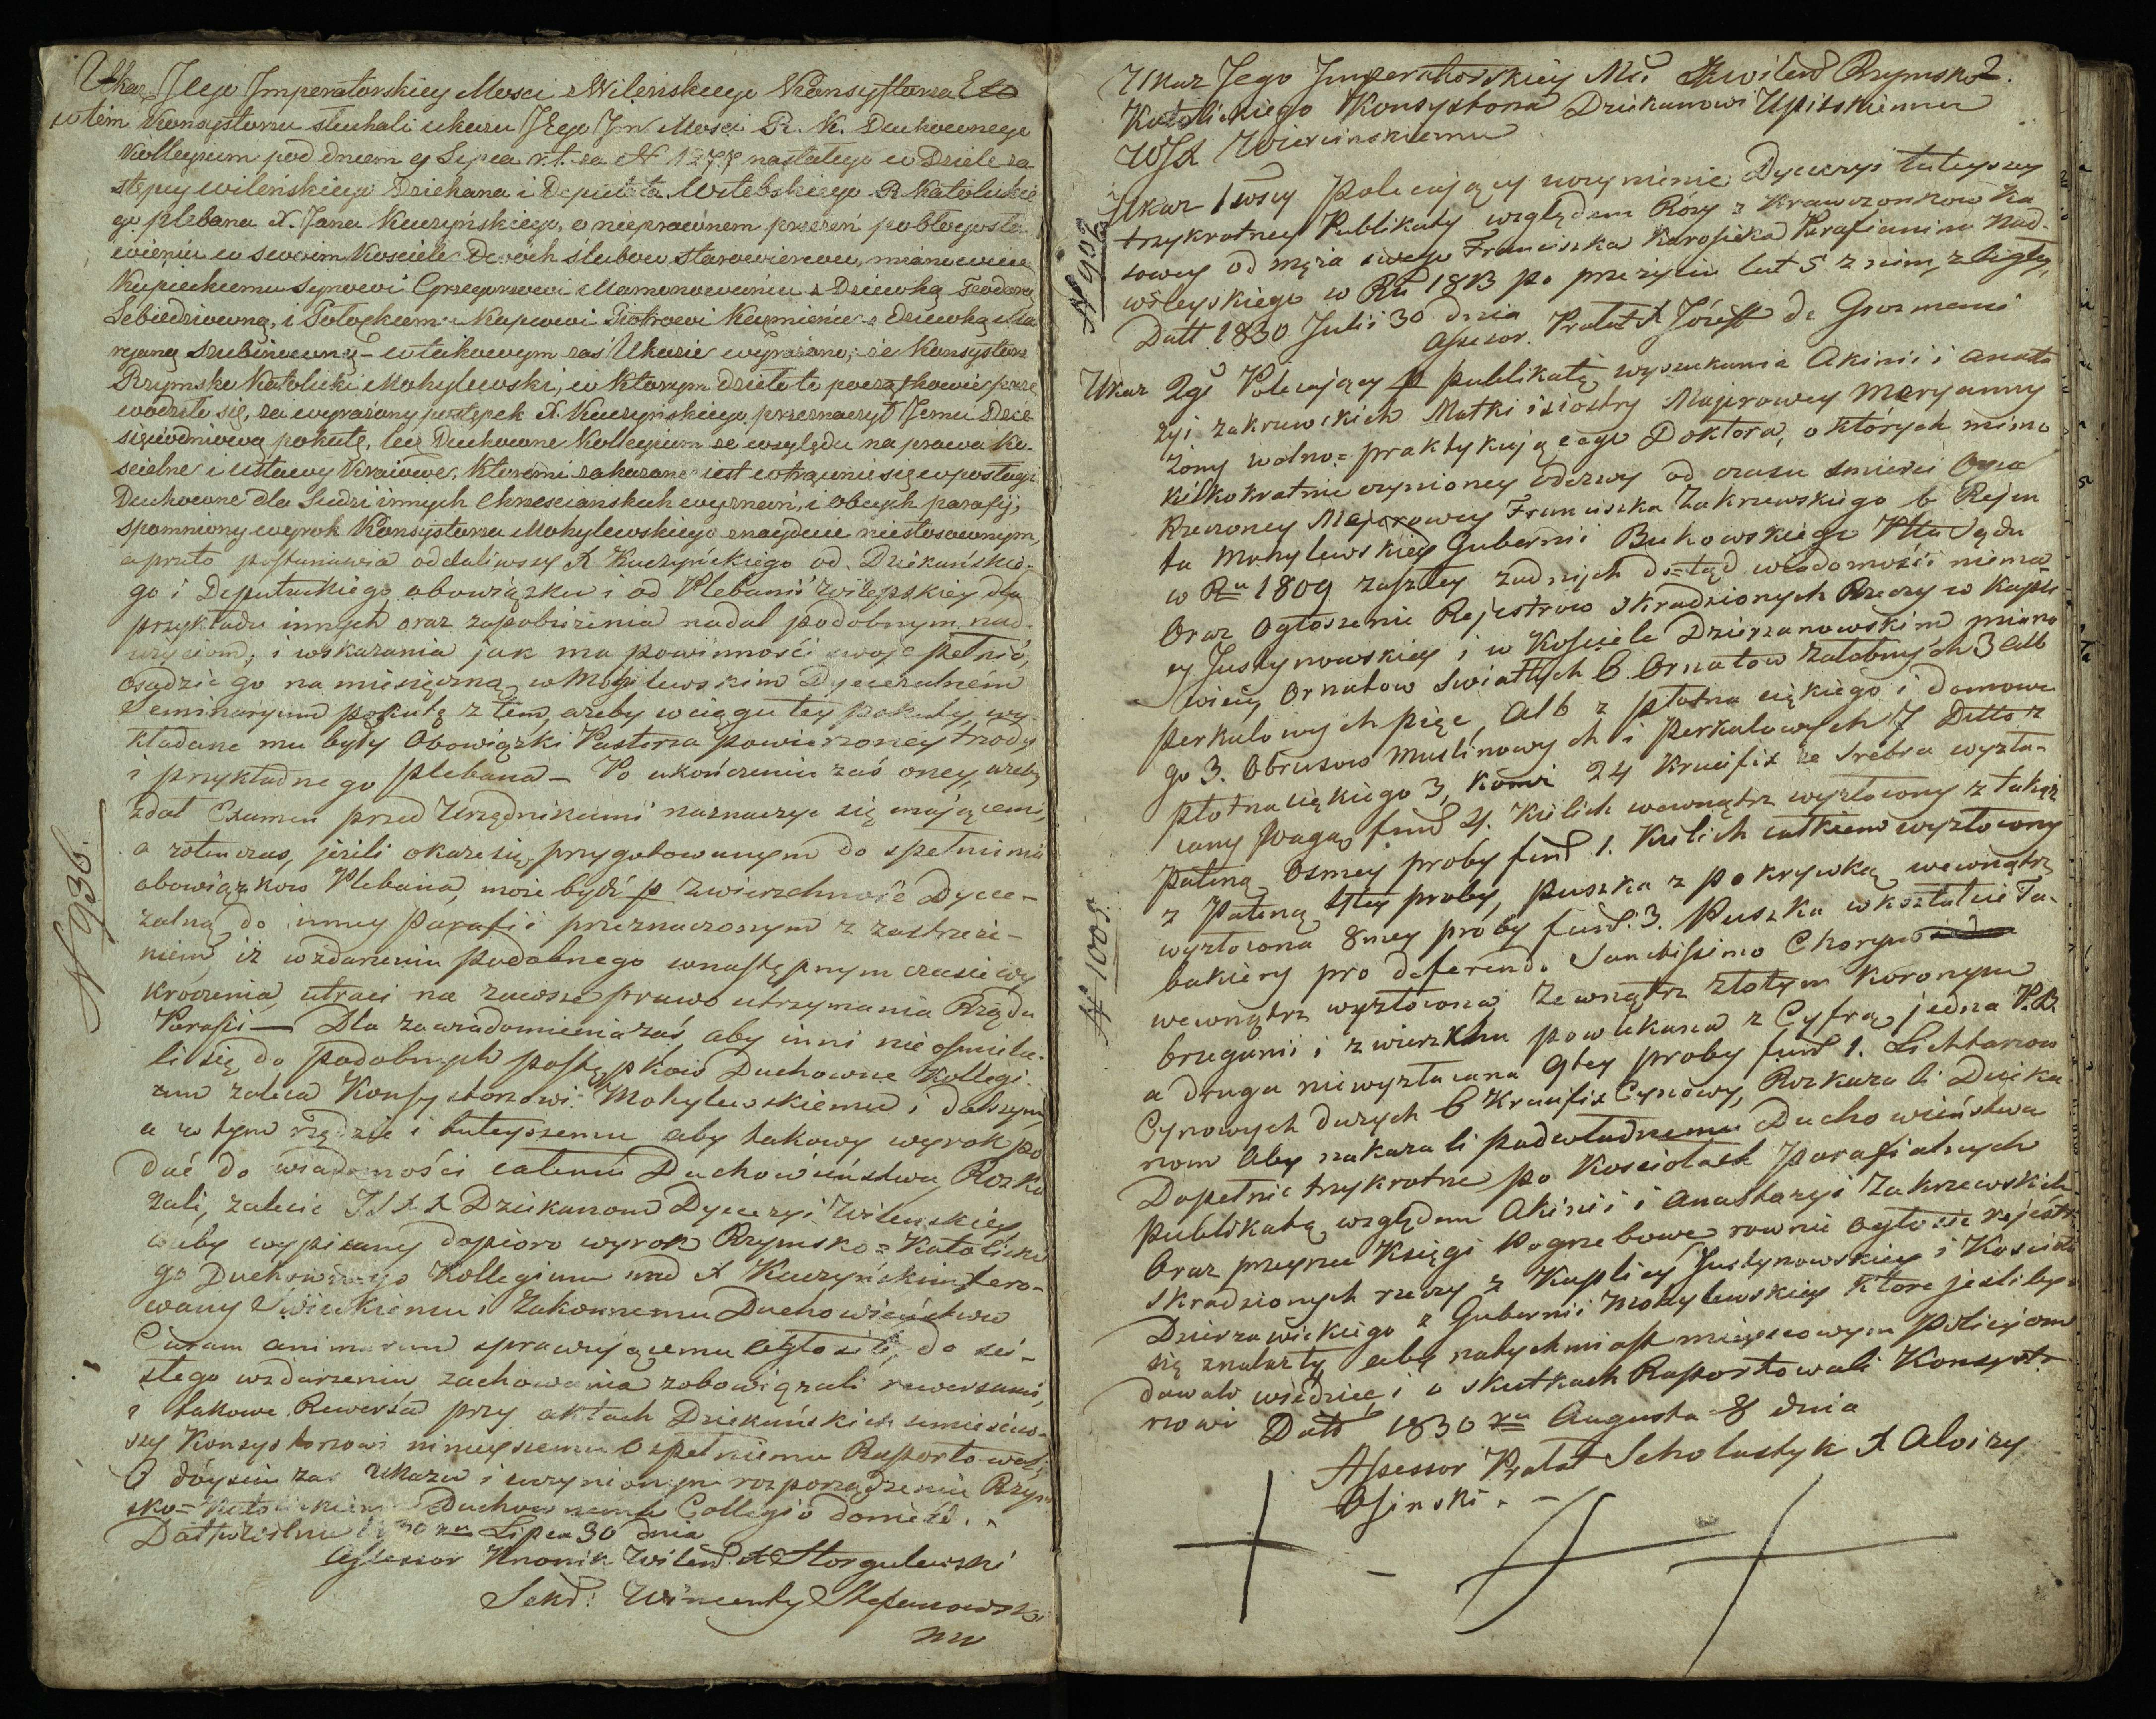 Ukaz JEgo Imperatorskiey Mosci z Wileńskiego Konsystorza Etc
w tém Konsystorzu słuchali ukazu JEgo Im Mosci R. K. Duchownego
Kollegium pod dniem 9 Lipca r. t. za N 1277 nastałego w Dziele za
stępcy wileńskiego Dziekana i Deputata Witebskiego R Katolickie
go plebana X. Jana Kuczyńskiego, o nieprawnem przezeń pobłogosła
wieniu w swoim Kosciele Dwóch ślubow Starowiercow, mianowicie
Kupieckiemu synowi Grzegorzowi Mamonowowiu z Dziewką Teodorą
Lebiedziowną, i Połockiem Kupcowi Piotrowi Kuzmienie z dziewką Ma
ryanną Szubinowną – w takowym zaś Ukazie wyrażono, że Konsystorz
Rzymsko Katolicki Mohylewski, w Ktorym dzieło to początkowie prze
wodziło się, za wyrażony postępek X. Kuczyńskiego przeznaczył Jemu Dzie
sięciodniową pokutę, lecz Duchowne Kollegium ze względu na prawa Ko-
scielne i ustawy Kraiowe, Ktoremi zakazane iest wtrącenie się w posługi
Duchowne dla Ludzi innych Chrzescianskich wyznań, i obcych parafij,
spomniony wyrok Konsystorza Mohylewskiego znayduie niestosownym,
a przeto postanawia oddaliwszy X Kuczyńskiego od Dziekańskie-
go i Deputackiego obowiązku i od Plebanii Witepskiey dla
przykładu innych oraz zapobieżenia nadal podobnym nad-
użyciom, i wskazania jak ma powinności swoje pełnić,
osądzić go na miesięczną w Mohilewskim Dyecezalném
Seminaryum pokutę z tem, ażeby w ciągu tey pokuty, wy-
kładane mu były Obowiązki Pasterza powierzoney trzody
i przykładnego plebana – Po ukończeniu zaś oney, ażeby
zdał Examen przed Urzędnikami naznaczyć się mającemi,
a wtenczas, jeżeli okaże się przygotowanym do spełnienia
obowiązkow Plebana, może bydź p Zwierzchność Dyece-
zalną do inney Parafii przeznaczonym z zastrzeże-
niem, iż w zdarzeniu podobnego w następnym czasie wy
kroczenia, utraci na zawsze prawo utrzymania Rządu
Parafii – Dla zawiadomienia zaś, aby inni nie ośmiela-
li się do podobnych postępkow Duchowne Kollegi-
um zaleca Konsystorzowi Mohylewskiemu i dalszym,
a w tym rzędzie i tuteyszemu aby takowy wyrok po
dać do wiadomości całemu Duchowieństwu Rozka
zali, zalecić JJ XX Dziekanom Dyecezyi Wilenskiey
ażeby wypisany dopioro wyrok Rzymsko=Katolickie
go Duchownego Kollegium nad X Kuczyńskim fero-
wany Świeckiemu i Zakonnemu Duchowieństwu
Curam animarum sprawującemu ogłosili, do ści-
słego w zdarzeniu zachowania zobowiązali rewersami,
i takowe Rewersa przy aktach Dziekańskich umieściw-
szy Konsystorzowi ninieyszemu O spełnieniu Raportowali,
O dóyściu zaś Ukazu i uczynionym rozporządzeniu Rzym
sko=Katolickiemu Duchownemu Collegió donieść.
Dat w Wilnie 1830 ru Lipca 30 dnia
Assessor Knonik Wileń. X Storgulewski
Sekr: Wincenty Stefanowski
mp
N 936.
Ukaz Jego Imperatorskiey Mści z Wileń Rzymsko 2.
Katolickiego Konsystorza Dziekanowi Upitskiemu
WJX Wiercinskiemu
N 902
Ukaz 1wszy Polecający uczynienie Dyecezyi tuteyszey
trzykrotney Publikaty względem Rozy z Krawczonkow Ka
sowey od męża swego Franciszka Karosieka Parafianina Nad-
wileyskiego w Ru 1813 po przeżyciu lat 5 z nim, zbiegłey
Datt 1830 Julii 30 dnia
Assesor. Prałat X Józeff de Grozmani
N 1005.
Ukaz 2gi Polecający p publikatę wyszukania Akinii i anasta
zyi zakrzewskich Matki i siostry Majorowey Maryanny
Żony wolno=praktykującego Doktora, o których mimo
kilkokrotnie czynioney odezwy od czasu śmierci Oyca
Rzeczoney Majorowey Franciszka Zakrzewskiego b Rejen
ta Mohylewskiey Gubernii Bukowskiego Pttu Sądu
w Ru 1809 zaszłey żadnych dotąd wiadomości niema
Oraz Ogłoszenie Rejestrow skradzionych Rzeczy w Kapli
cy Justynowskiey i w Kościele Dzierzanowskim miano
wicie, Ornatow Swiatłych 6. Ornatow Żałobnych 3 Alb
perkalowych pięć, Alb z płotna cięzkiego i domowe
go 3. Obrusow Muslinowych i Perkalowych 7 Ditto z
płotna cięzkiego 3, Komż 24 Krucifix ze srebra wyzła-
cany Wagą funt 4. Kielich wewnątrz wyzłocony z takąż
Pateną Osmey proby funt 1. Kielich całkiem wyzłocony
z Pateną 9tey proby, puszka z pokrywką wewnątrz
wyzłocona 8mey proby funt. 3. Puszka w kształcie Ta-
bakiery pro deferendo Sanctissimo Chorym
wewnątrz wyzłocona Zewnątrz złotym Koronym
brzegami i z wierzchu powlekana z Cyfrą jedna P.B.
a druga niewyzłacana 9tey proby funt 1. Lichtarzow
Cynowych dużych 6 Krucifix Cynowy, Rozkazali Dzieka
nom Aby nakazali podwładnemu Duchowieństwu
Dopełnić trzykrotne po Kosciołach Parafialnych
publikatę względem Akinii i Anastazyi Zakrzewskich
Oraz przeyrzeć Księgi Pogrzebowe rownie ogłosić rejestr
skradzionych rzeczy z Kaplicy Justynowskiey i Kościoła
Dzierzawickiego z Gubernii Mohylewskiey Które jeśliby
się znalazły, aby natychmiast mieyscowym policyiom
dawali wiedzieć, i o skutkach Raportowali Konsysto-
rzowi Datt 1830 ru Augusta 8 dnia
Assessor Prałat Scholastyk X Aloizy
Osinski. –